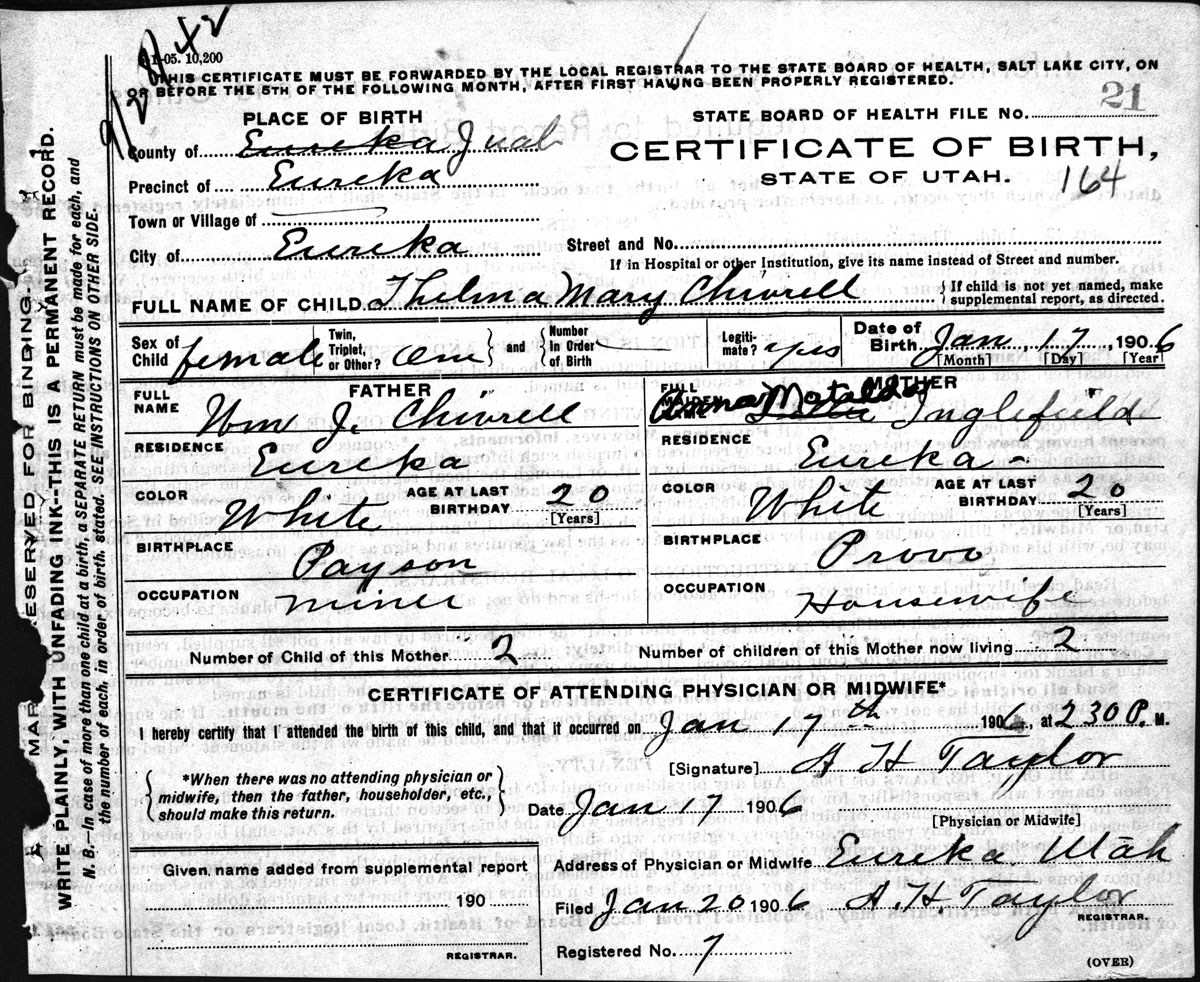 9/28/42
1-05. 10,200
THIS CERTIFICATE MUST BE FORWARDED BY THE LOCAL REGISTRAR TO THE STATE BOARD OF HEALTH, SALT LAKE CITY, ON
OR BEFORE THE 5TH OF THE FOLLOWING MONTH, AFTER FIRST HAVING BEEN PROPERLY REGISTERED.
21
PLACE OF BIRTH
STATE BOARD OF HEALTH FILE NO.
County of Eureka Juab
CERTIFICATE OF BIRTH,
Precinct of Eureka
STATE OF UTAH. 164
Town or Village of
City of Eureka
Street and No.
If in Hospital or other Institution, give its name instead of Street and number.
FULL NAME OF CHILD Thelma Mary Chivrell
If child is not yet named, make
supplemental report, as directed.
Sex of Child female
Twin, Triplet, or Other? One and Number In Order of Birth
Legiti-mate? yes
Date of Birth Jan 17 1906
[Month] [Day] [Year]
FATHER
FULL NAME Wm J. Chivrell
RESIDENCE Eureka
COLOR White
AGE AT LAST BIRTHDAY 20
[Years]
BIRTHPLACE Payson
OCCUPATION miner
MOTHER
FULL MAIDEN Anna Matalda Inglefield
RESIDENCE Eureka -
COLOR White
AGE AT LAST BIRTHDAY 20
[Years]
BIRTHPLACE Provo
OCCUPATION Housewife
Number of Child of this Mother 2
Number of children of this Mother now living 2
CERTIFICATE OF ATTENDING PHYSICIAN OR MIDWIFE*
I hereby certify that I attended the birth of this child, and that it occurred on Jan 17th 1906, at 230 P. M.
[Signature] A H Taylor
*When there was no attending physician or
midwife, then the father, householder, etc.,
should make this return.
Date Jan 17 1906
[Physician or Midwife]
Given name added from supplemental report
190
REGISTRAR.
Address of Physician or Midwife Eureka Utah
Filed Jan 20 1906 A. H Taylor
REGISTRAR.
Registered No. 7
(OVER)
MAR ESERVED FOR BINDING
WRITE PLAINLY, WITH UNFADING INK-THIS IS A PERMANENT RECORD.
N. B.—In case of more than one child at a birth, a SEPARATE RETURN must be made for each, and
the number of each, in order of birth, stated. SEE INSTRUCTIONS ON OTHER SIDE.